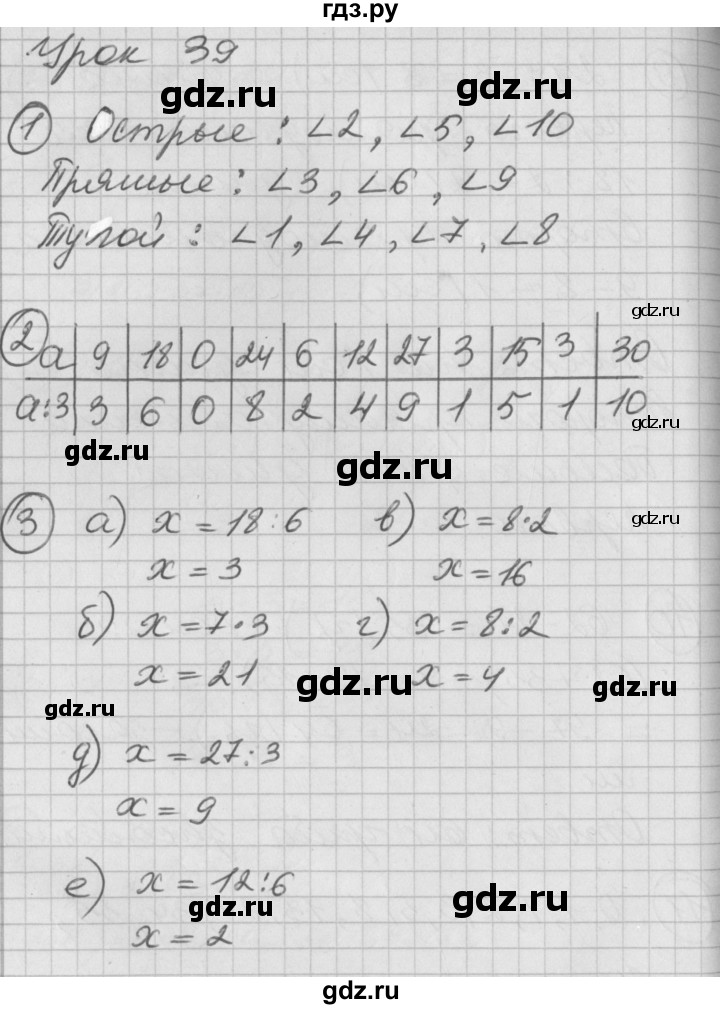 гдз.ру
Урок 39
gdz.ru gdz.ru
1 Острые : ∠2, ∠5, ∠10
Прямые : ∠3, ∠6, ∠9
Тупой : ∠1, ∠4, ∠7, ∠8
gdz.ru
2 a 9 18 0 24 6 12 27 3 15 3 30
a:3 3 6 0 8 2 4 9 1 5 1 10
gdz.ru gdz.ru gdz.ru
3 а) x = 18:6 в) x = 8·2 gdz.ru
x = 3 x = 16
б) x = 7·3 г) x = 8:2
x = 21 gdz.ru x = 4 gdz.ru
gdz.ru
д) x = 27:3
x = 9
е) x = 12:6
gdz.ru gdz.ru
x = 2
gdz.ru